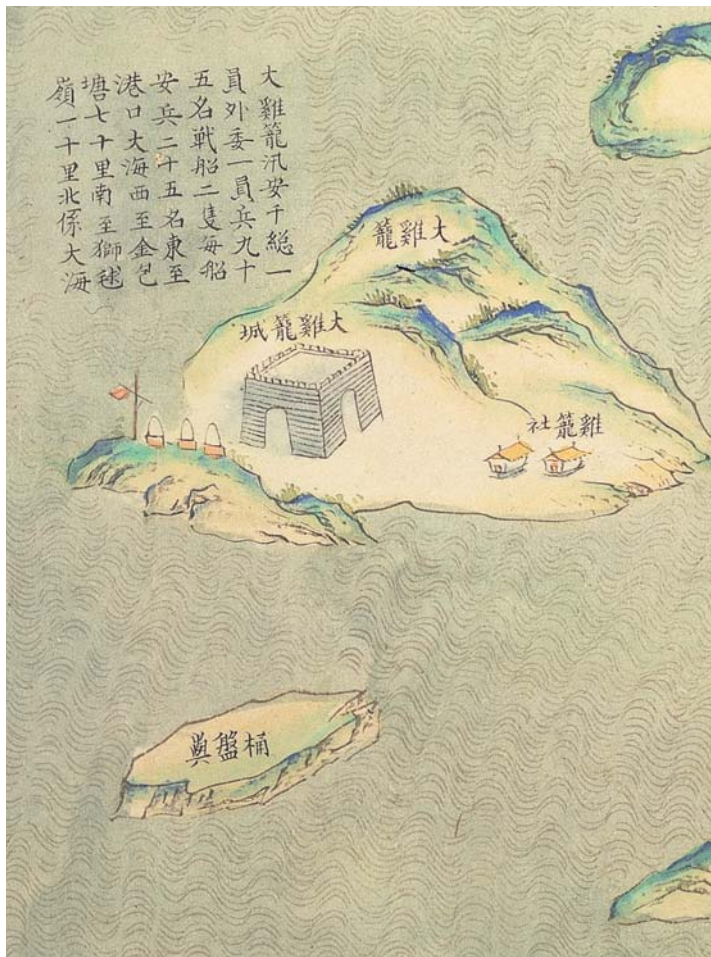 大雞籠汛安千総一
員外委一員兵九十
五名戦船二隻每船
安兵二十五名東至
港口大海西至金包
塘七十里南至獅毬
嶺一十里北係大海
大雞籠
大雞籠城
雞籠社
桶盤輿